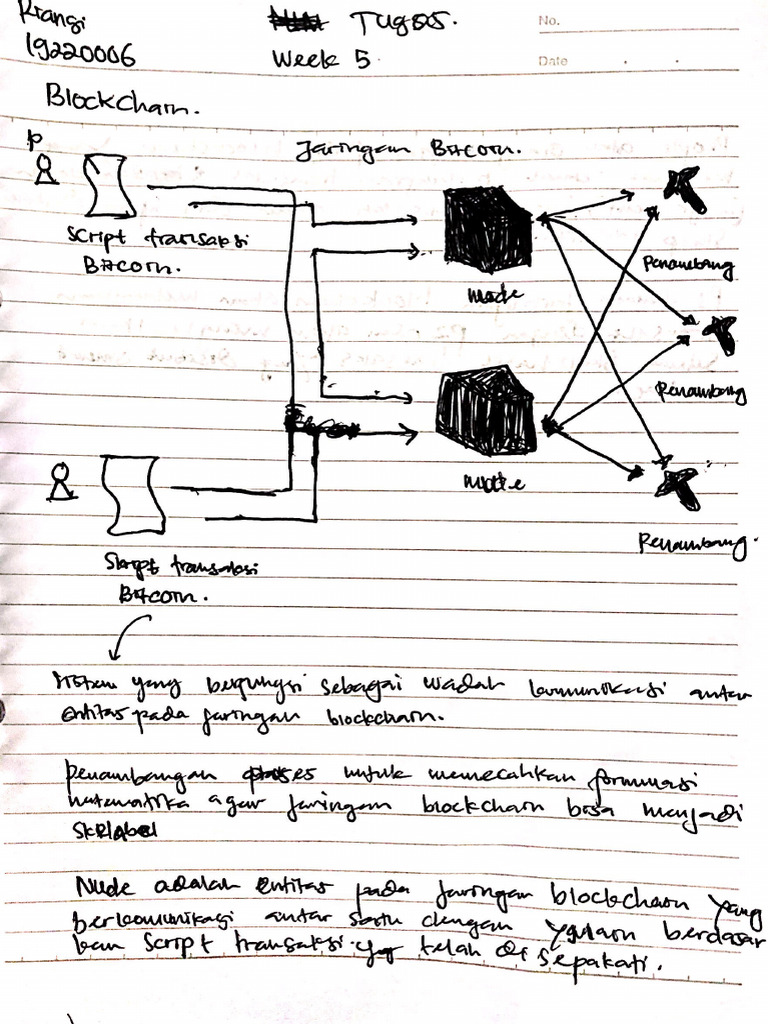 Krangi
19220006
Tugas.
Week 5.
No.
Date
Blockchain.
P
Jaringan Bitcoin.
Script transaksi
Bitcoin.
node
Penambang
Penambang
node
Penambang.
Skript transaksi
Bitcoin.
sistem yang berfungsi sebagai wadah komunikasi antar
entitas pada jaringan blockchain.
penambangan proses untuk memecahkan formulasi
matematika agar jaringan blockchain bisa menjadi
Node adalah entitas pada jaringan blockchain yang
berkomunikasi antar satu dengan yg lain berdasar
kan script transaksi yg telah di sepakati.